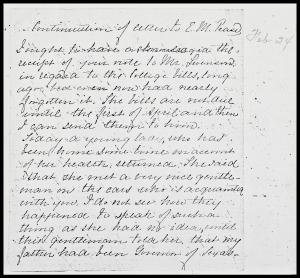 Continuation of letter to E. M. Pease
Feb 24
I ought to have acknowledged the
receipt of your note to Mr. Swenson
in regard to the College bills, long
ago, but even now had nearly
forgotten it. The bills are not due
until the first of April and then
I can send them to him.
Today a young lady, who has
been home some time on account
of her health, returned. She said
that she met a very nice gentle-
man on the cars who is acquainted
with you. I do not see how they
happened to speak of such a
thing as she had no idea, until
this gentleman told her, that my
father had been Governor of Texas.